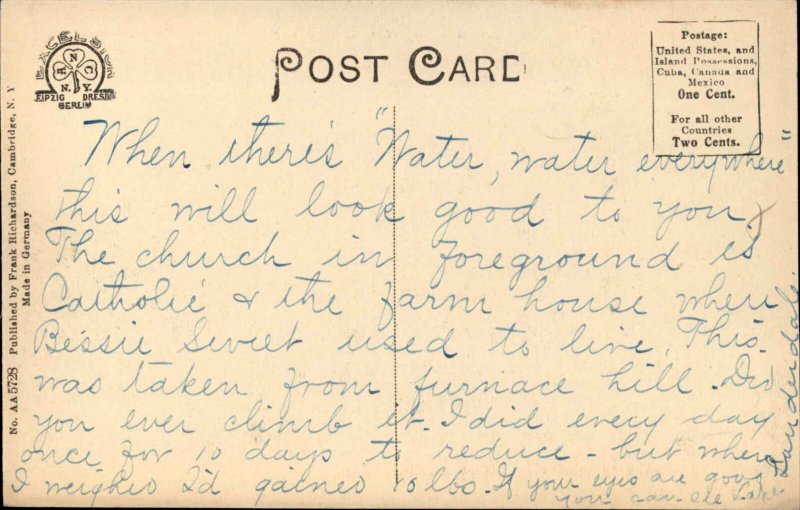 EXCELSIOR
H N C
N.Y.
LEIPZIG DRESDEN
BERLIN
POST CARD
Postage:
United States, and
Island Possessions,
Cuba, Canada and
Mexico
One Cent.
For all other
Countries
Two Cents.
No. AA 5728 Published by Frank Richardson, Cambridge, N. Y
Made in Germany
When there's "Water, water everywhere"
this will look good to you
The church in foreground is
Catholic & the farm house where
Bessie Sweet used to live. This
was taken from furnace hill. Did
you ever climb it. I did every day
once for 10 days to reduce - but when
I weighed I'd gained 10 lbs. If your eyes are good
you can see Lake
Lauderdale.